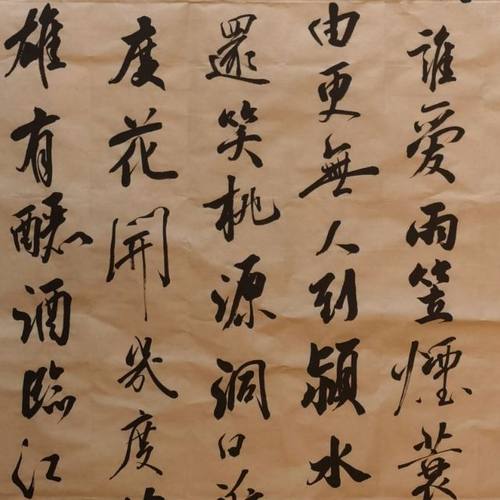 誰愛雨笠煙蓑
由更無人到潁水
還笑桃源洞口
度花開幾度
雄有釃酒臨江